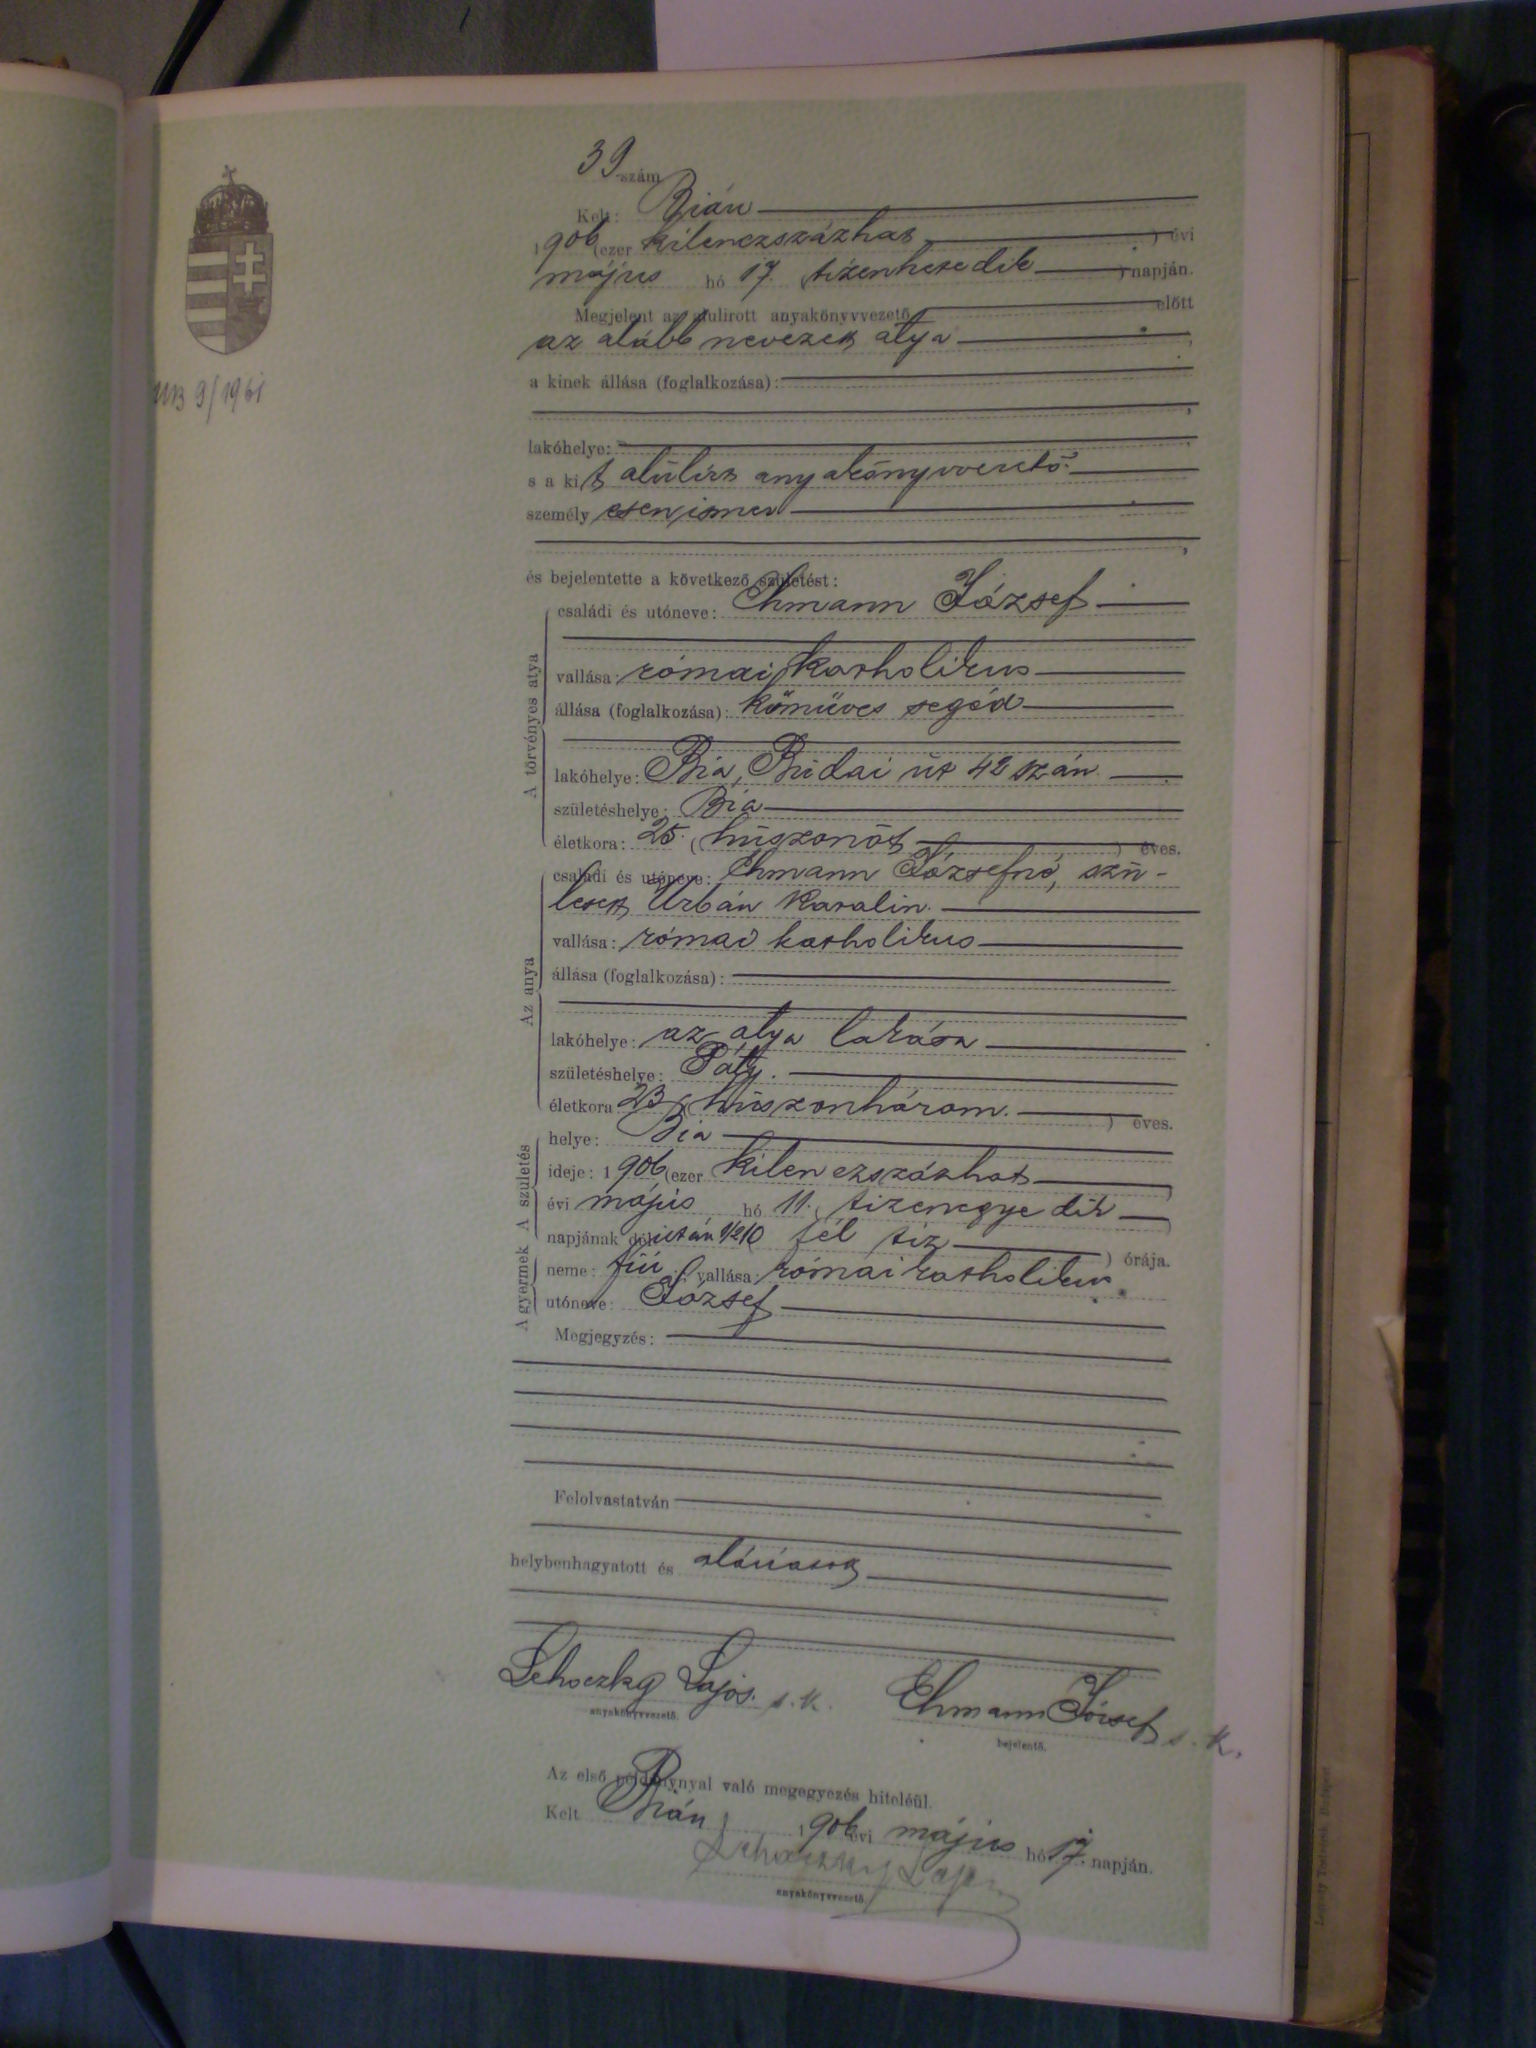 39 szám
Kelt: Bián
1906 (ezer kilenczszázhat ) évi
május hó 17 (tizenhetedik ) napján.
Megjelent az alulirott anyakönyvvezető előtt
az alább nevezett atya
a kinek állása (foglalkozása):
lakóhelye:
s a kit alúlirt anyakönyvvezető
személyesen ismer
és bejelentette a következő születést:
A törvényes atya
családi és utóneve: Ehmann József
vallása: római katholikus
állása (foglalkozása): kőműves segéd
lakóhelye: Bia, Budai út 42 szám
születéshelye: Bia
életkora: 25. (húszonöt ) éves.
Az anya
családi és utóneve: Ehmann Józsefné, szü-
letett Urbán Katalin.
vallása: római katholikus
állása (foglalkozása):
lakóhelye: az atya lakása
születéshelye: Páty.
életkora 23 (húszonhárom. ) éves.
A születés
helye: Bia
ideje: 1906 (ezer kilenczszázhat )
évi május hó 11. (tizenegyedik )
napjának délután 1/210 (fél tíz ) órája.
A gyermek
neme: fiú; vallása: római katholikus
utóneve: József
Megjegyzés:
Felolvastatván
helybenhagyatott és aláíratott
Lehoczky Lajos. s. k.
anyakönyvvezető.
Ehmann József s. k.
bejelentő.
Az első példánynyal való megegyezés hiteléül.
Kelt Bián, 1906 évi május hó 17. napján.
Lehoczky Lajos
anyakönyvvezető.